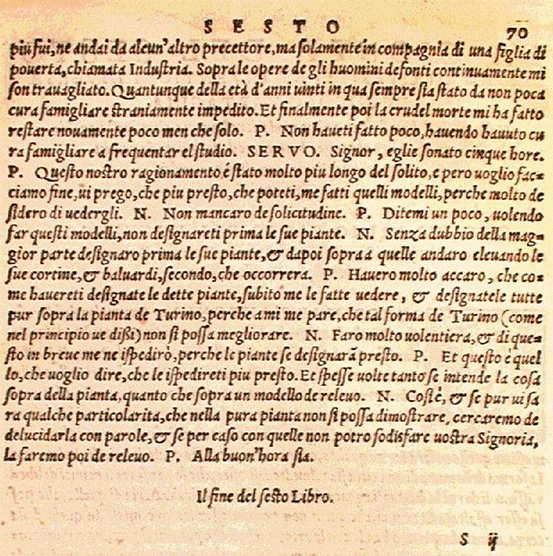 SESTO 70
piu fui, ne andai da alcun'altro precettore, ma solamente in compagnia di una figlia di
pouerta, chiamata Industria. Sopra le opere de gli huomini defonti continuamente mi
son trauagliato. Quantunque della età d'anni uinti in qua sempre sia stato da non poca
cura famigliare straniamente impedito. Et finalmente poi la crudel morte mi ha fatto
restare nouamente poco men che solo. P. Non haueti fatto poco, hauendo hauuto cu
ra famigliare a frequentar el studio. SERVO. Signor, eglie sonato cinque hore.
P. Questo nostro ragionamento è stato molto piu longo del solito, e pero uoglio fac=
ciamo fine, ui prego, che piu presto, che poteti, me fatti quelli modelli, perche molto de
sidero di uedergli. N. Non mancaro de solicitudine. P. Ditemi un poco, uolendo
far questi modelli, non designareti prima le sue piante. N. Senza dubbio della mag=
gior parte designaro prima le sue piante, & dapoi sopra a quelle andaro eleuando le
sue cortine, & baluardi, secondo, che occorrera. P. Hauero molto accaro, che co=
me hauereti designate le dette piante, subito me le fatte uedere, & designatele tutte
pur sopra la pianta de Turino, perche a mi me pare, che tal forma de Turino (come
nel principio ue dissi) non si possa megliorare. N. Faro molto uolentiera, & di que=
sto in breue me ne ispedirò, perche le piante se designarã presto. P. Et questo è quel
lo, che uoglio dire, che le ispedireti piu presto. Et spesse uolte tanto se intende la cosa
sopra della pianta, quanto che sopra un modello de releuo. N. Cosi è, & se pur ui sa
ra qualche particolarita, che nella pura pianta non si possa dimostrare, cercaremo de
delucidarla con parole, & se per caso con quelle non potro sodisfare uostra Signoria,
la faremo poi de releuo. P. Alla buon'hora sia.
Il fine del sesto Libro.
S ij